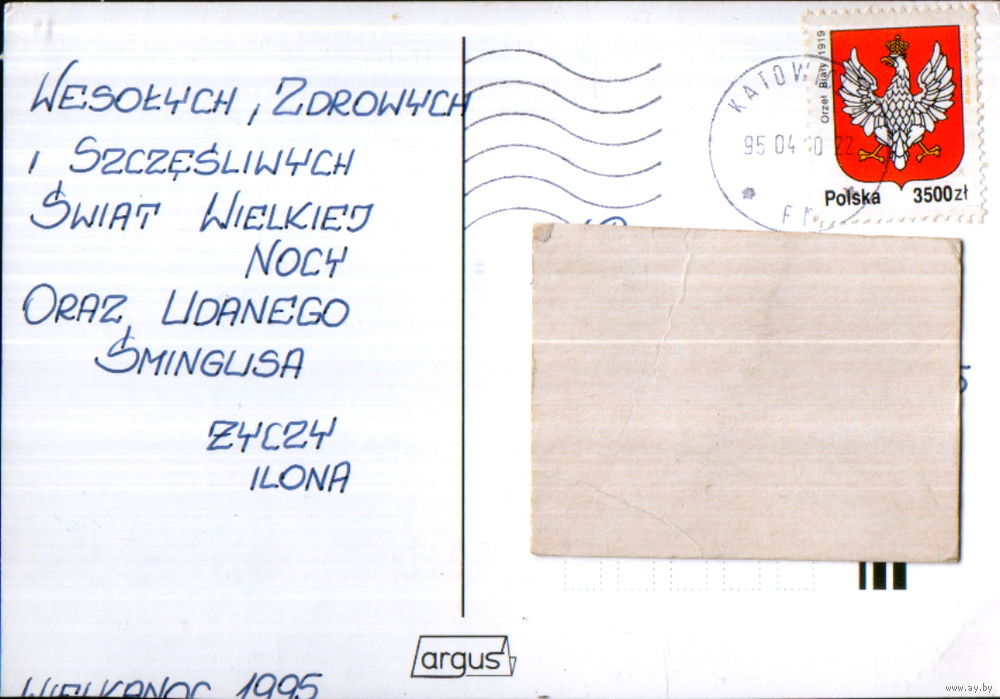 WESOŁYCH, ZDROWYCH
I SZCZĘŚLIWYCH
ŚWIĄT WIELKIEJ
NOCY
ORAZ UDANEGO
ŚMINGUSA
ŻYCZY
ILONA
WIELKANOC 1995
KATOW
95 04 0 22
Orzeł Biały 1919
Polska 3500zł
argus
www.ay.by